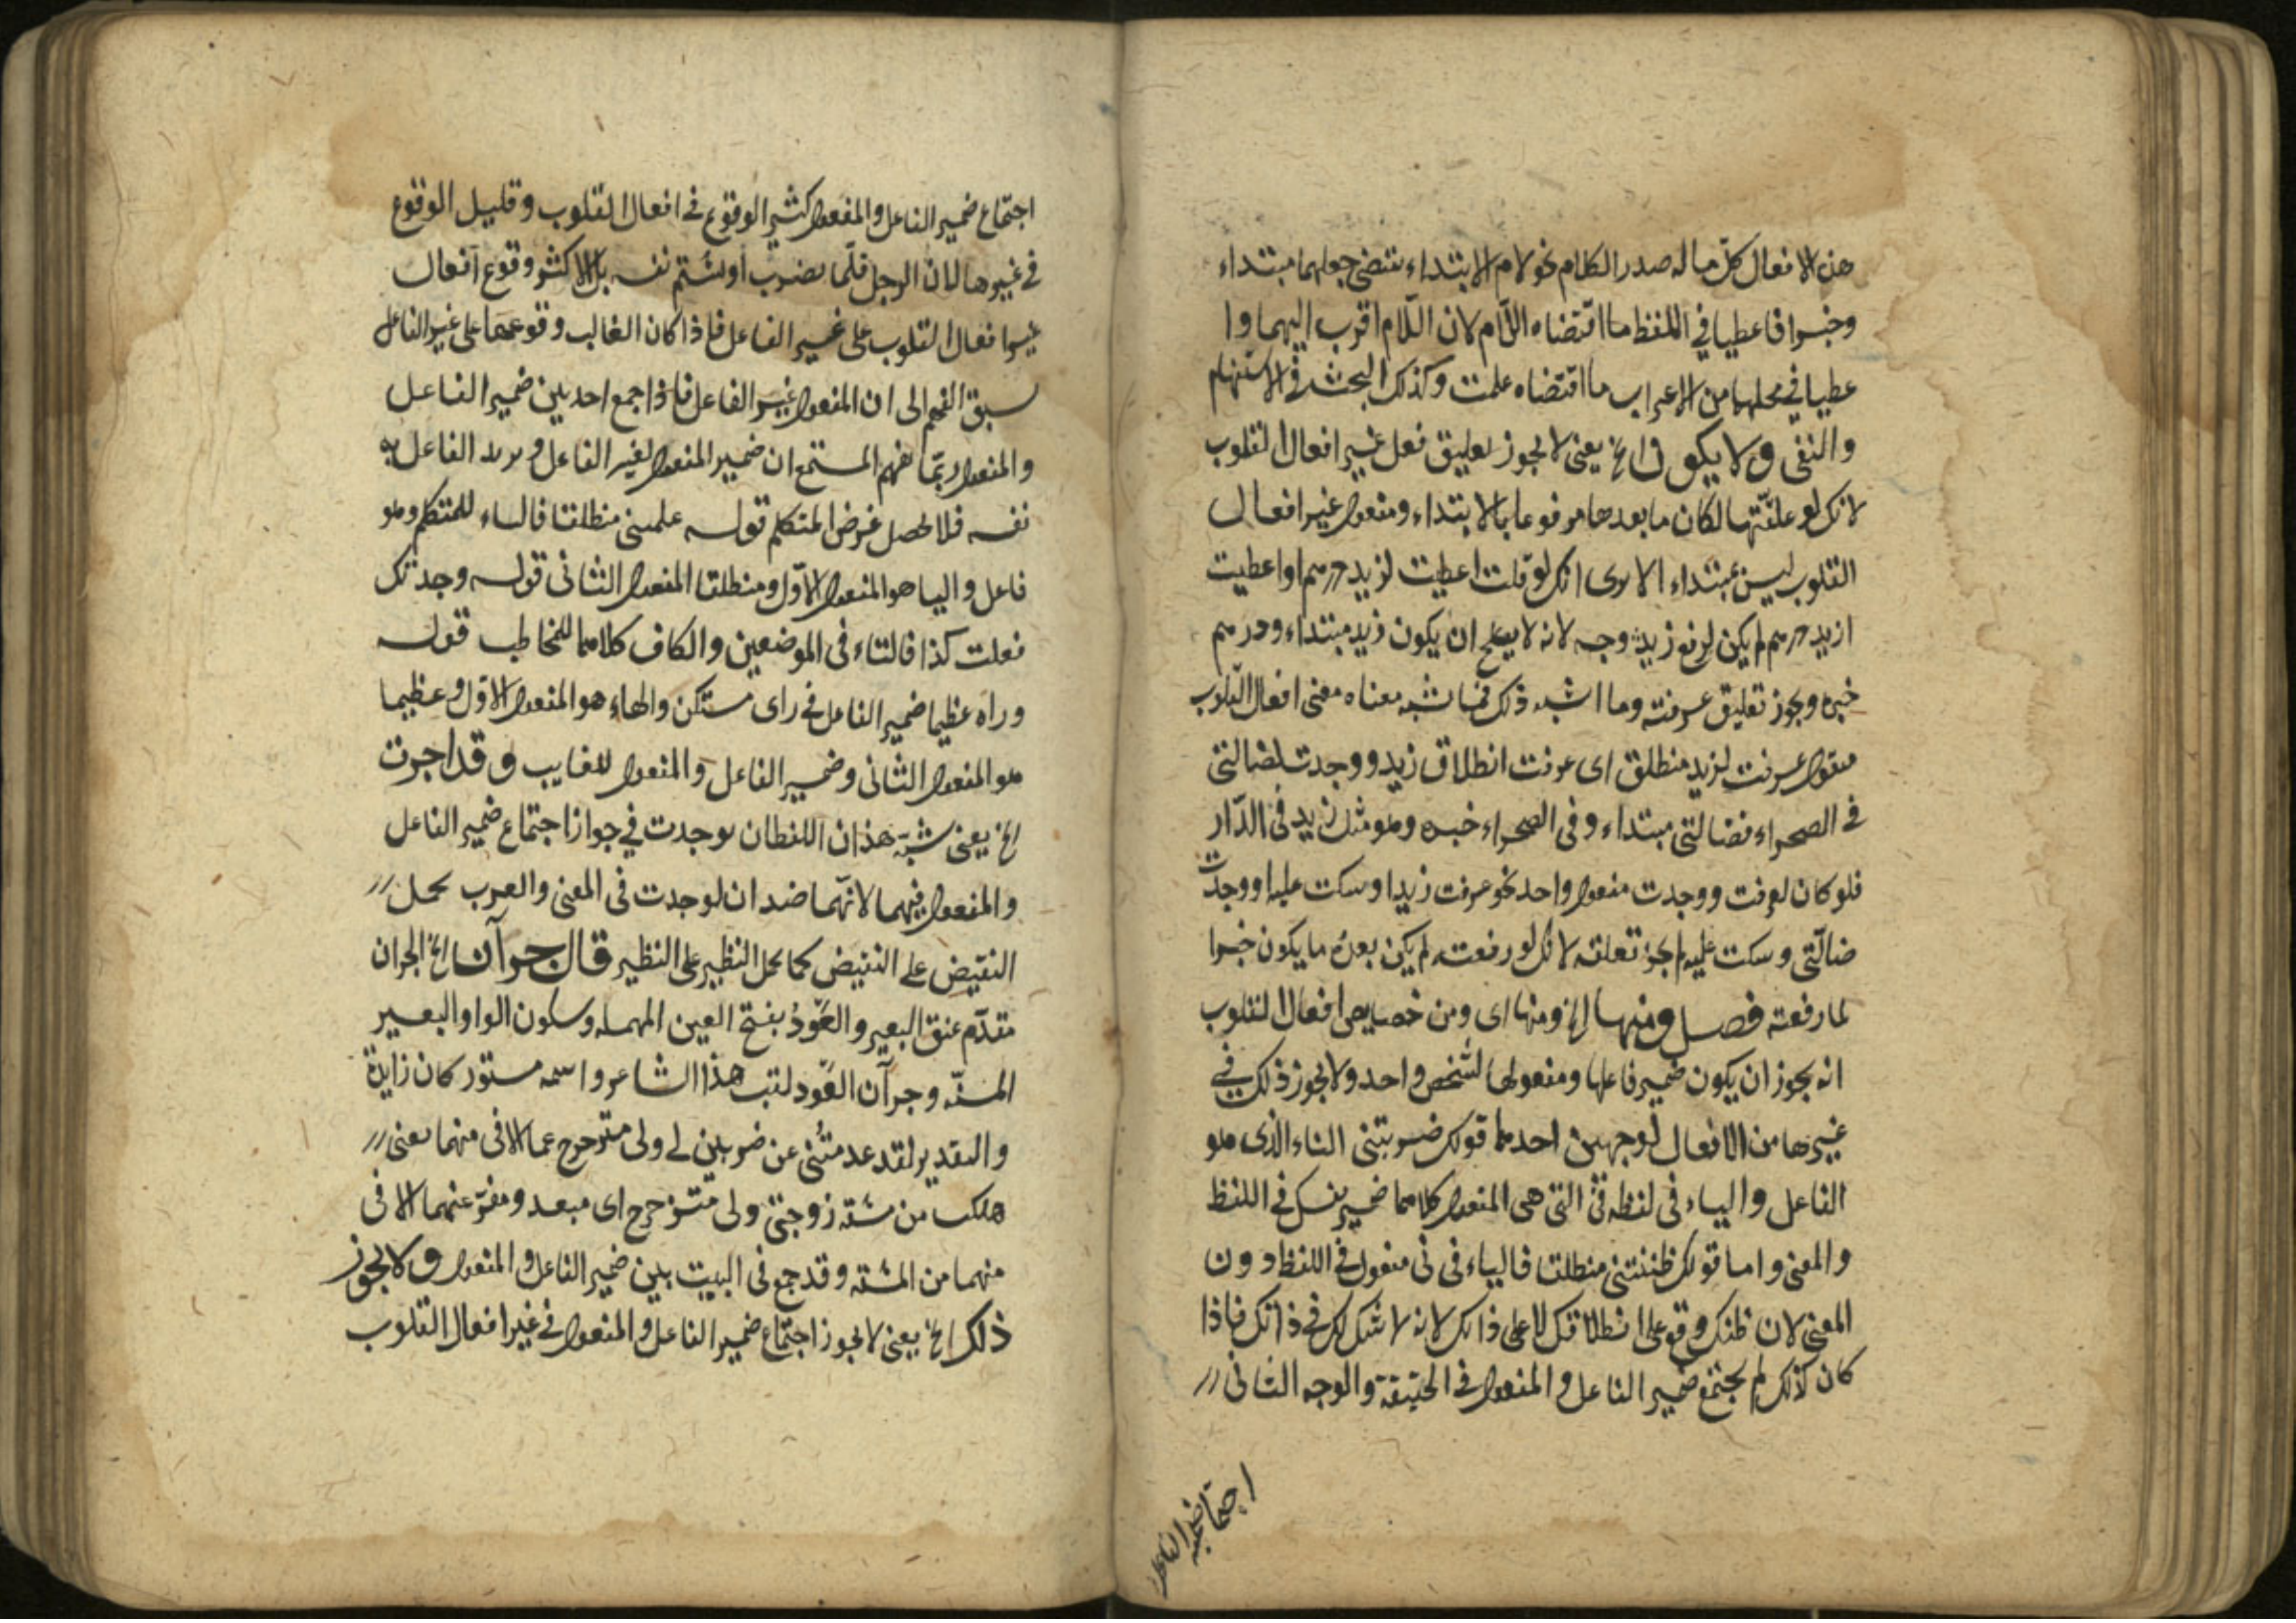 هذه الافعال كلّ ما له صدر الكلام نحو لام الابتداء تقتضى جعلهما مبتداء
وخبرا فاعطيا في اللفظ ما اقتضاه اللّام لان اللّام اقرب اليهما وا
عطيا في محلهما من الاعراب ما اقتضاه علمت وكذلك البحث في الاستفهام
والنفى ولا يكون الخ يعنى لا يجوز تعليق فعل غير افعال القلوب
لانك لو علّقتها لكان ما بعدها مرفوعا بالابتداء ومفعول غير افعال
القلوب ليس بمبتداء الا ترى انك لو قلت اعطيت لزيد درهم او اعطيت
ازيد درهم لم يكن لرفع زيد وجه لانه لا يصلح ان يكون زيد مبتداء ودرهم
خبره ويجوز تعليق عرفت وما اشبه ذلك مما شبه معناه معنى افعال القلوب
تقول عرفت لزيد منطلق اى عرفت انطلاق زيد ووجدت لضالتى
في الصحراء فضالتى مبتداء وفى الصحراء خبره وهو مثل زيد في الدّار
فلو كان لعرفت ووجدت مفعول واحد نحو عرفت زيدا وسكت عليه او وجدت
ضالّتى وسكت عليه لم يجز تعلقه لانك لو رفعته لم يكن بعده ما يكون خبرا
لما رفعته فصل ومنها الخ ومنها اى ومن خصايص افعال القلوب
انه يجوز ان يكون ضمير فاعلها ومفعولها لشخص واحد ولا يجوز ذلك في
غيرها من الافعال لوجهين احدهما قولك ضربتنى التاء الذى هو
الفاعل والياء فى لفظه نى التى هى المفعول كلاهما ضمير نفسك في اللفظ
والمعنى واما قولك ظننتنى منطلقا فالياء فى نى مفعول في اللفظ دون
المعنى لان ظنك وقع على انطلاقك لا على ذاتك لانه لا شك لك في ذاتك فاذا
كان كذلك لم يجتمع ضمير الفاعل والمفعول في الحقيقة والوجه الثانى
اجتماع ضمير الفاعل
اجتماع ضمير الفاعل والمفعول كثير الوقوع في افعال القلوب وقليل الوقوع
في غيرها لان الرجل قلّما يضرب او يشتم نفسه بل الاكثر وقوع افعال
غير افعال القلوب على غير الفاعل فاذا كان الغالب وقوعها على غير الفاعل
سبق الفهم الى ان المفعول غير الفاعل فاذا جمع احد بين ضمير الفاعل
والمفعول ربّما يفهم المستمع ان ضمير المفعول لغير الفاعل ويريد الفاعل به
نفسه فلا يحصل غرض المتكلم قوله علمتنى منطلقا فالتاء للمتكلم وهو
فاعل واليا هو المفعول الاوّل ومنطلقا المفعول الثانى قوله وجدتك
فعلت كذا فالتاء فى الموضعين والكاف كلاهما للمخاطب قوله
وراه عظيما ضمير الفاعل في راى مستكن والهاء هو المفعول الاوّل وعظيما
هو المفعول الثانى وضمير الفاعل والمفعول للغايب وقد اجرت
الخ يعنى شبّه هذان اللفظان بوجدت في جواز اجتماع ضمير الفاعل
والمفعول فيهما لانهّما ضدان لوجدت فى المعنى والعرب يحمل
النقيض على النقيض كما يحمل النظير على النظير قال جرآن الخ الجران
مقدّم عنق البعير والعَوْدُ بفتح العين المهمله وسكون الواو البعير
المسنّه وجرآن العَوْد لقب هذا الشاعر واسمه مستورد كان زايدة
والتقدير لقد عدمتُنى عن ضربين لى ولى متزحزح عما الاقى منهما يعنى
هلكت من مشقه زوجتىّ ولى متزحزح اى مبعد ومفرّ عنهما الاقى
منهما من المشقه وقد جمع فى البيت بين ضمير الفاعل والمفعول ولا يجوز
ذلك الخ يعنى لا يجوز اجتماع ضمير الفاعل والمفعول في غير افعال القلوب